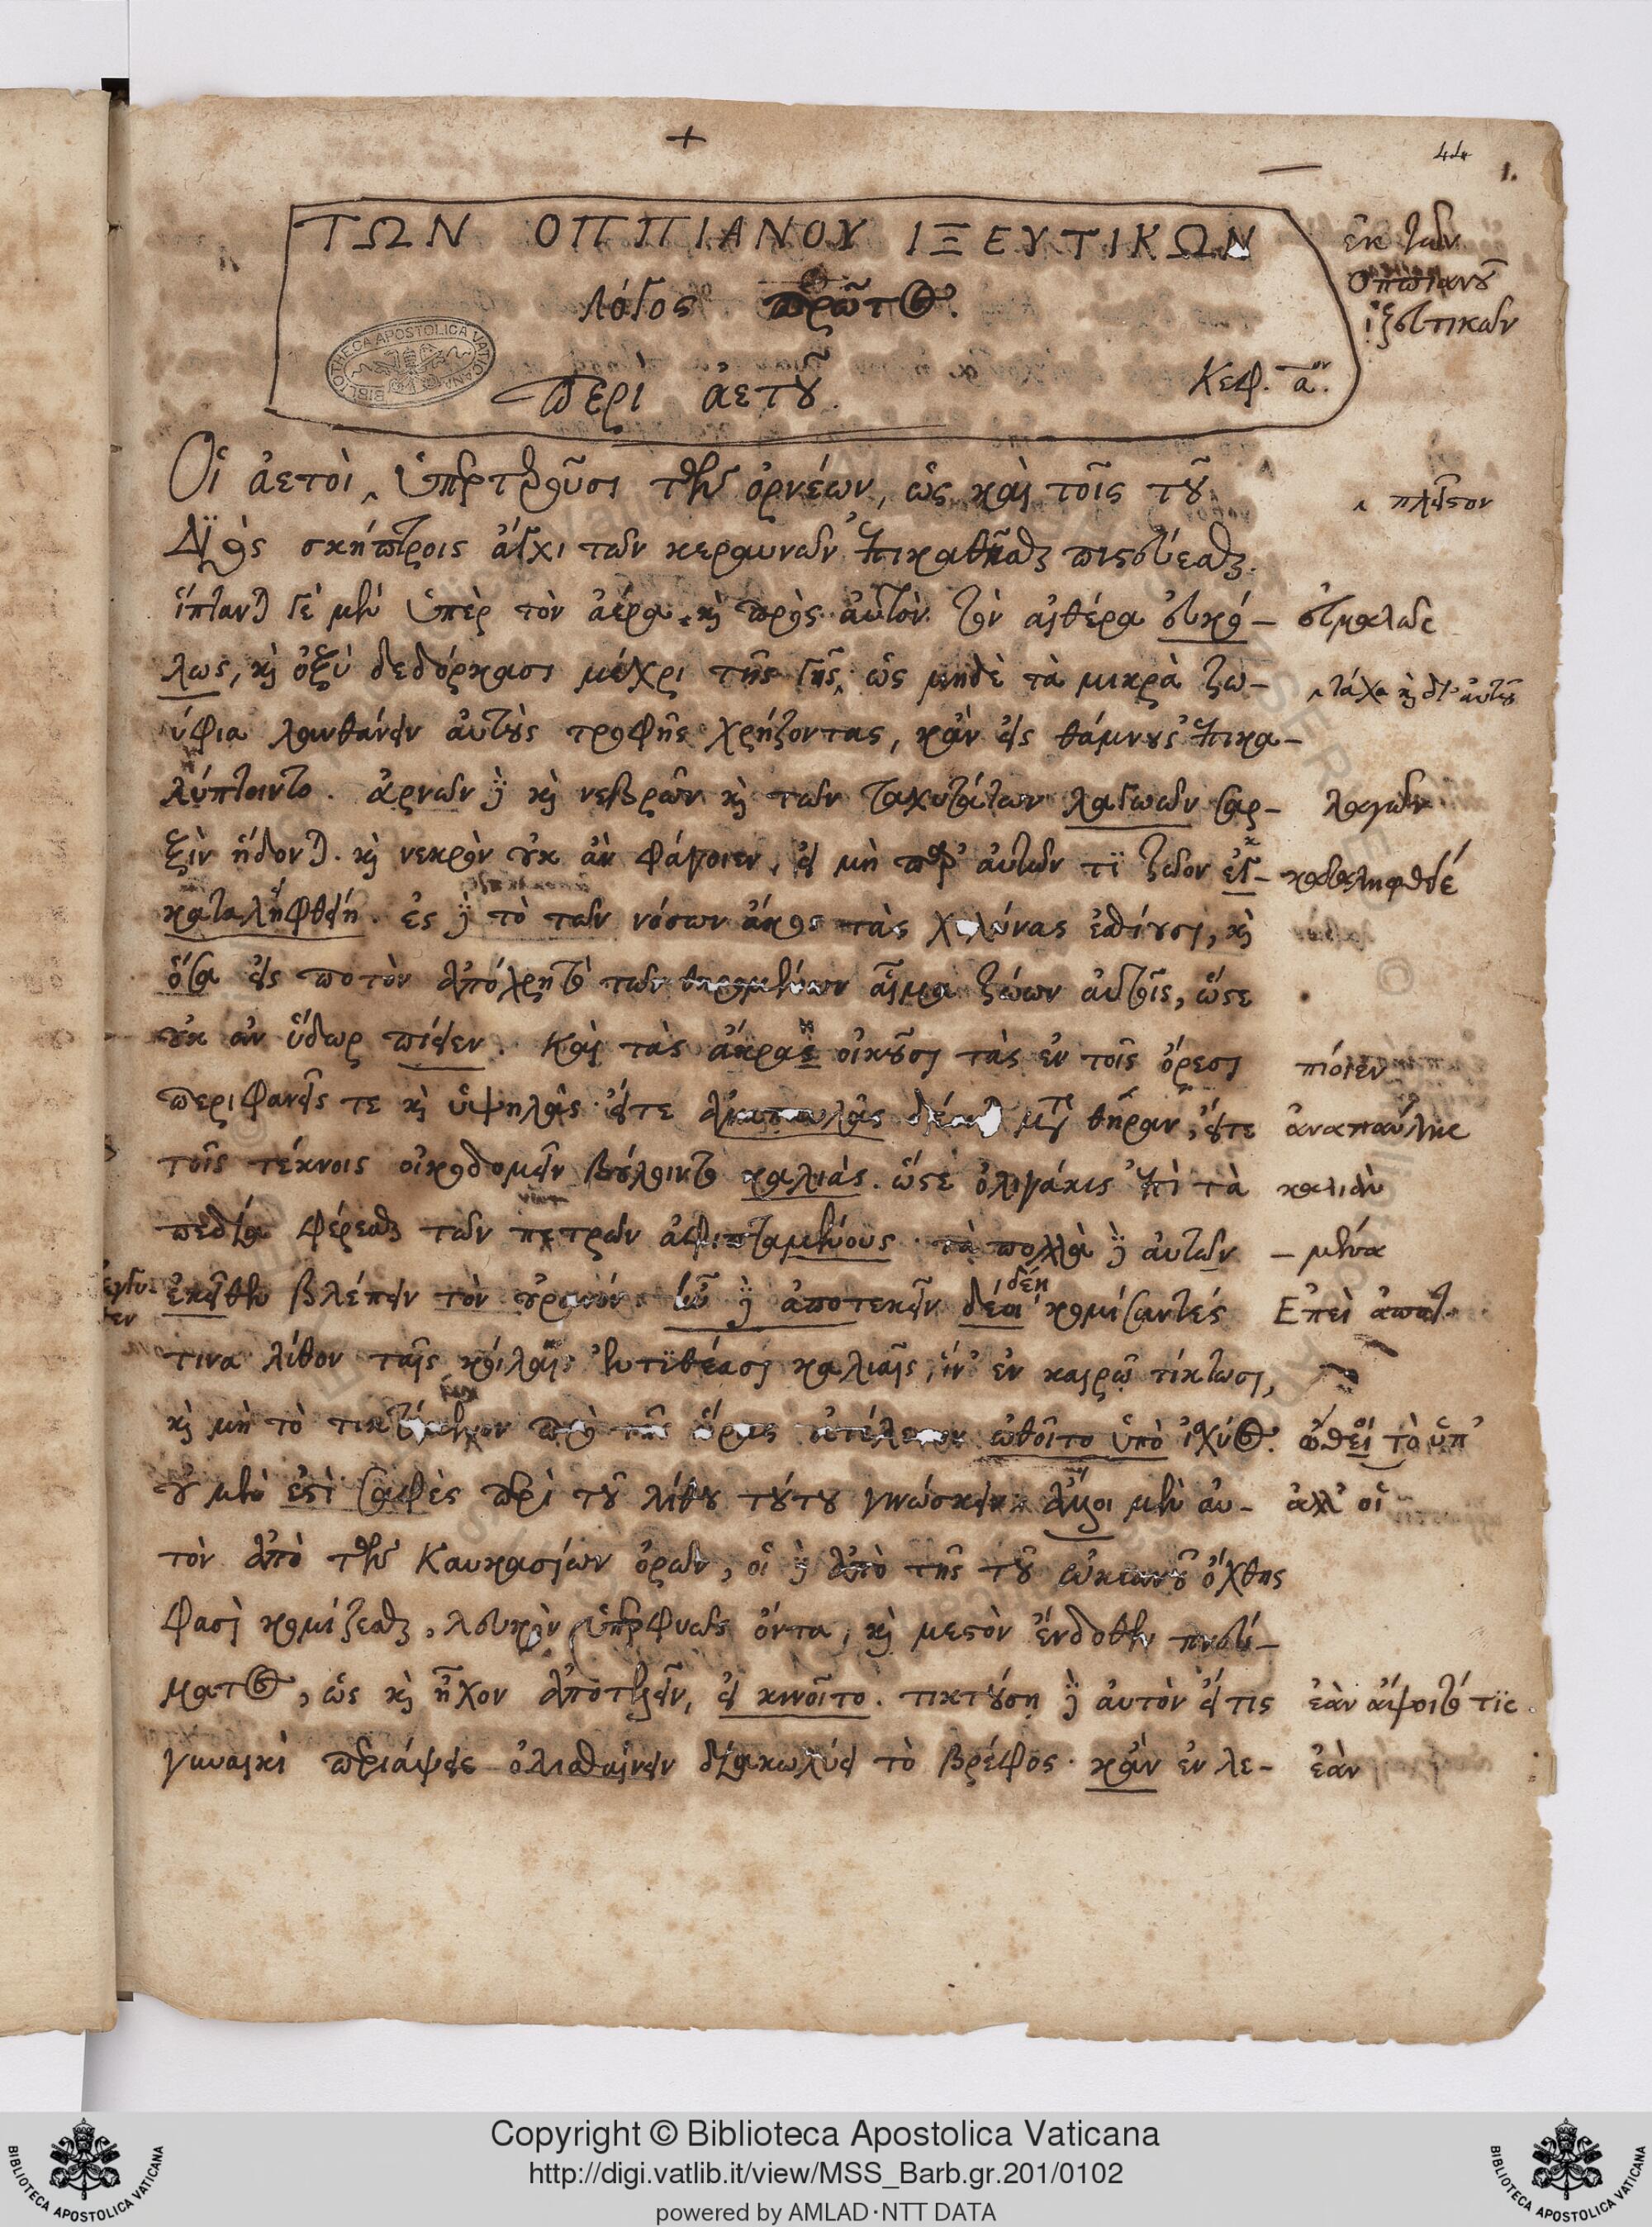 +
44
1.
ΤΩΝ ΟΠΠΙΑΝΟΥ ΙΞΕΥΤΙΚΩΝ
λόγος πρῶτος.
Περὶ ἀετοῦ. Κεφ. αον.
ἐκ τῶν
Ὀππιανοῦ
ἰξευτικῶν
Οἱ ἀετοὶ ὑπερτεροῦσι τῶν ὀρνέων, ὡς καὶ τοῖς τοῦ
πλεῖστον
Διὸς σκήπτροις ἄγχι τῶν κεραυνῶν ἐπικαθῆσθαι πιστεύεσθαι.
ἵπτανται γε μὴν ὑπὲρ τὸν ἀέρα, καὶ πρὸς αὐτὸν τὸν αἰθέρα εὐκό-
εὐμαλῶς
λως, καὶ ὀξὺ δεδόρκασι μέχρι τῆς γῆς, ὡς μηδὲ τὰ μικρὰ ζω-
τάχα καὶ δι' αὐτοῦ
ύφια λανθάνειν αὐτοὺς τροφῆς χρήζοντας, κἂν εἰς θάμνους ἐπικα-
λύπτοιντο. ἀρνῶν δὲ καὶ νεβρῶν καὶ τῶν ταχυτάτων λαγωῶν σαρ-
λαγωῶν
ξὶν ἥδονται. καὶ νεκρὸν οὐκ ἂν φάγοιεν, εἰ μὴ παρ' αὐτῶν τι ζῶον ἐγ-
καταληφθείη. ἐς δὲ τὸ τῶν νόσων ἄκος τὰς χελώνας ἐσθίουσι, καὶ
καταληφθὲν
ὅσα εἰς ποτὸν ἀπόχρη τὸ τῶν θηρωμένων αἷμα ζώων αὐτοῖς, ὥστε
οὐκ ἂν ὕδωρ πίειεν. Καὶ τὰς ἄκρας οἰκοῦσι τὰς ἐν τοῖς ὄρεσι
πιόιεν
περιφανεῖς τε καὶ ὑψηλὰς, εἴτε ἀναπαύλας μετὰ θήραν, εἴτε
ἀναπαύλης
τοῖς τέκνοις οἰκοδομεῖν βούλοιντο καλιάς. ὥστε ὀλιγάκις ἐπὶ τὰ
καλιὰν
πεδία φέρεσθαι τῶν πετρῶν ἀφιπταμένους. τὰ πολλὰ δὲ αὐτῶν
-μένα
ἐκεῖθεν βλέπειν τὸν οὐρανόν. ἂν δὲ ἀποτεκεῖν δέοι κομίσαντές
δέη
Ἐπεὶ
τινα λίθον ταῖς κοίλαις ἐντιθέασι καλιαῖς, ἵν' ἐν καιρῷ τίκτωσι,
καὶ μὴ τὸ τικτόμενον πρὸ τῆς ὥρας ἀτέλεστον ὠθοῖτο ὑπὸ ἰχύος.
ὠθεῖ τὸ ὑπ'
οὐ μὲν ἐστὶ σαφὲς περὶ τοῦ λίθου τούτου γινώσκειν. ἀλλοι μὲν αὐ-
ἀλλ' οἱ
τὸν ἀπὸ τῶν Καυκασίων ὀρῶν, οἱ δὲ ἀπὸ τῆς τοῦ ὠκεανοῦ ὄχθης
φασὶ κομίζεσθαι, λευκὸν ὑπερφυῶς ὄντα, καὶ μεστὸν ἔνδοθεν πνεύ-
ματος, ὡς καὶ ἦχον ἀποτελεῖν, εἰ κινοῖτο. τικτούσῃ δὲ αὐτὸν εἴ τις
ἐὰν ἅψοιτό τις
γυναικὶ περιάψειε ὀλισθαίνειν διακωλύει τὸ βρέφος. κἂν ἐν λε-
ἐὰν
Copyright © Biblioteca Apostolica Vaticana
http://digi.vatlib.it/view/MSS_Barb.gr.201/0102
powered by AMLAD·NTT DATA
BIBLIOTECA APOSTOLICA VATICANA
BIBLIOTECA APOSTOLICA VATICANA